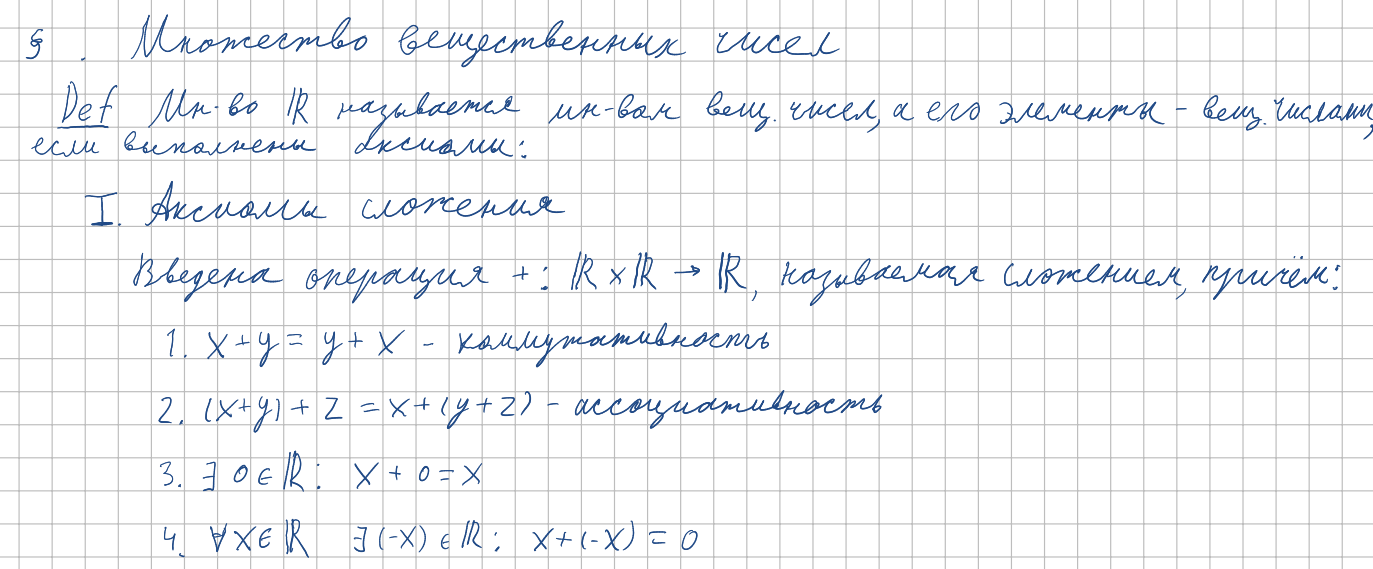 § . Множество вещественных чисел
Def Мн-во ℝ называется мн-вом вещ. чисел, а его элементы - вещ. числами,
если выполнены аксиомы:
I. Аксиомы сложения
Введена операция +: ℝ × ℝ → ℝ, называемая сложением, причём:
1. x+y = y+x - коммутативность
2. (x+y)+z = x+(y+z) - ассоциативность
3. ∃ 0 ∈ ℝ: x + 0 = x
4. ∀x∈ℝ ∃(-x) ∈ ℝ: x+(-x) = 0